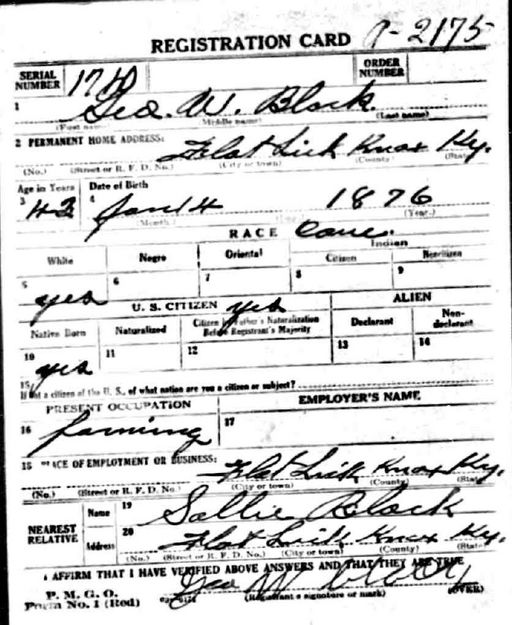 REGISTRATION CARD
SERIAL NUMBER
ORDER NUMBER
1 Geo. W. Black
(First name) (Middle name) (Last name)
2 PERMANENT HOME ADDRESS:
Flat Lick Knox Ky.
(No.) (Street or R. F. D. No.) (City or town) (County) (State)
Age in Years Date of Birth
3 42 4 Jan 14 1876
(Month.) (Year.)
RACE Cauc.
White Negro Oriental Indian
Citizen Noncitizen
5 yes 6 7 8 9
U. S. CITIZEN yes ALIEN
Native Born Naturalized Citizen by Father's Naturalization Before Registrant's Majority Declarant Non-declarant
10 yes 11 12 13 14
15 If not a citizen of the U. S., of what nation are you a citizen or subject?
PRESENT OCCUPATION EMPLOYER'S NAME
16 farming 17
18 PLACE OF EMPLOYMENT OR BUSINESS:
Flat Lick Knox Ky.
(No.) (Street or R. F. D. No.) (City or town) (County) (State)
NEAREST RELATIVE
Name 19 Sallie Black
Address 20 Flat Lick Knox Ky.
(No.) (Street or R. F. D. No.) (City or town) (County) (State)
I AFFIRM THAT I HAVE VERIFIED ABOVE ANSWERS AND THAT THEY ARE TRUE
P. M. G. O.
Form No. 1 (Red) Geo W Black
(Registrant's signature or mark) (OVER)